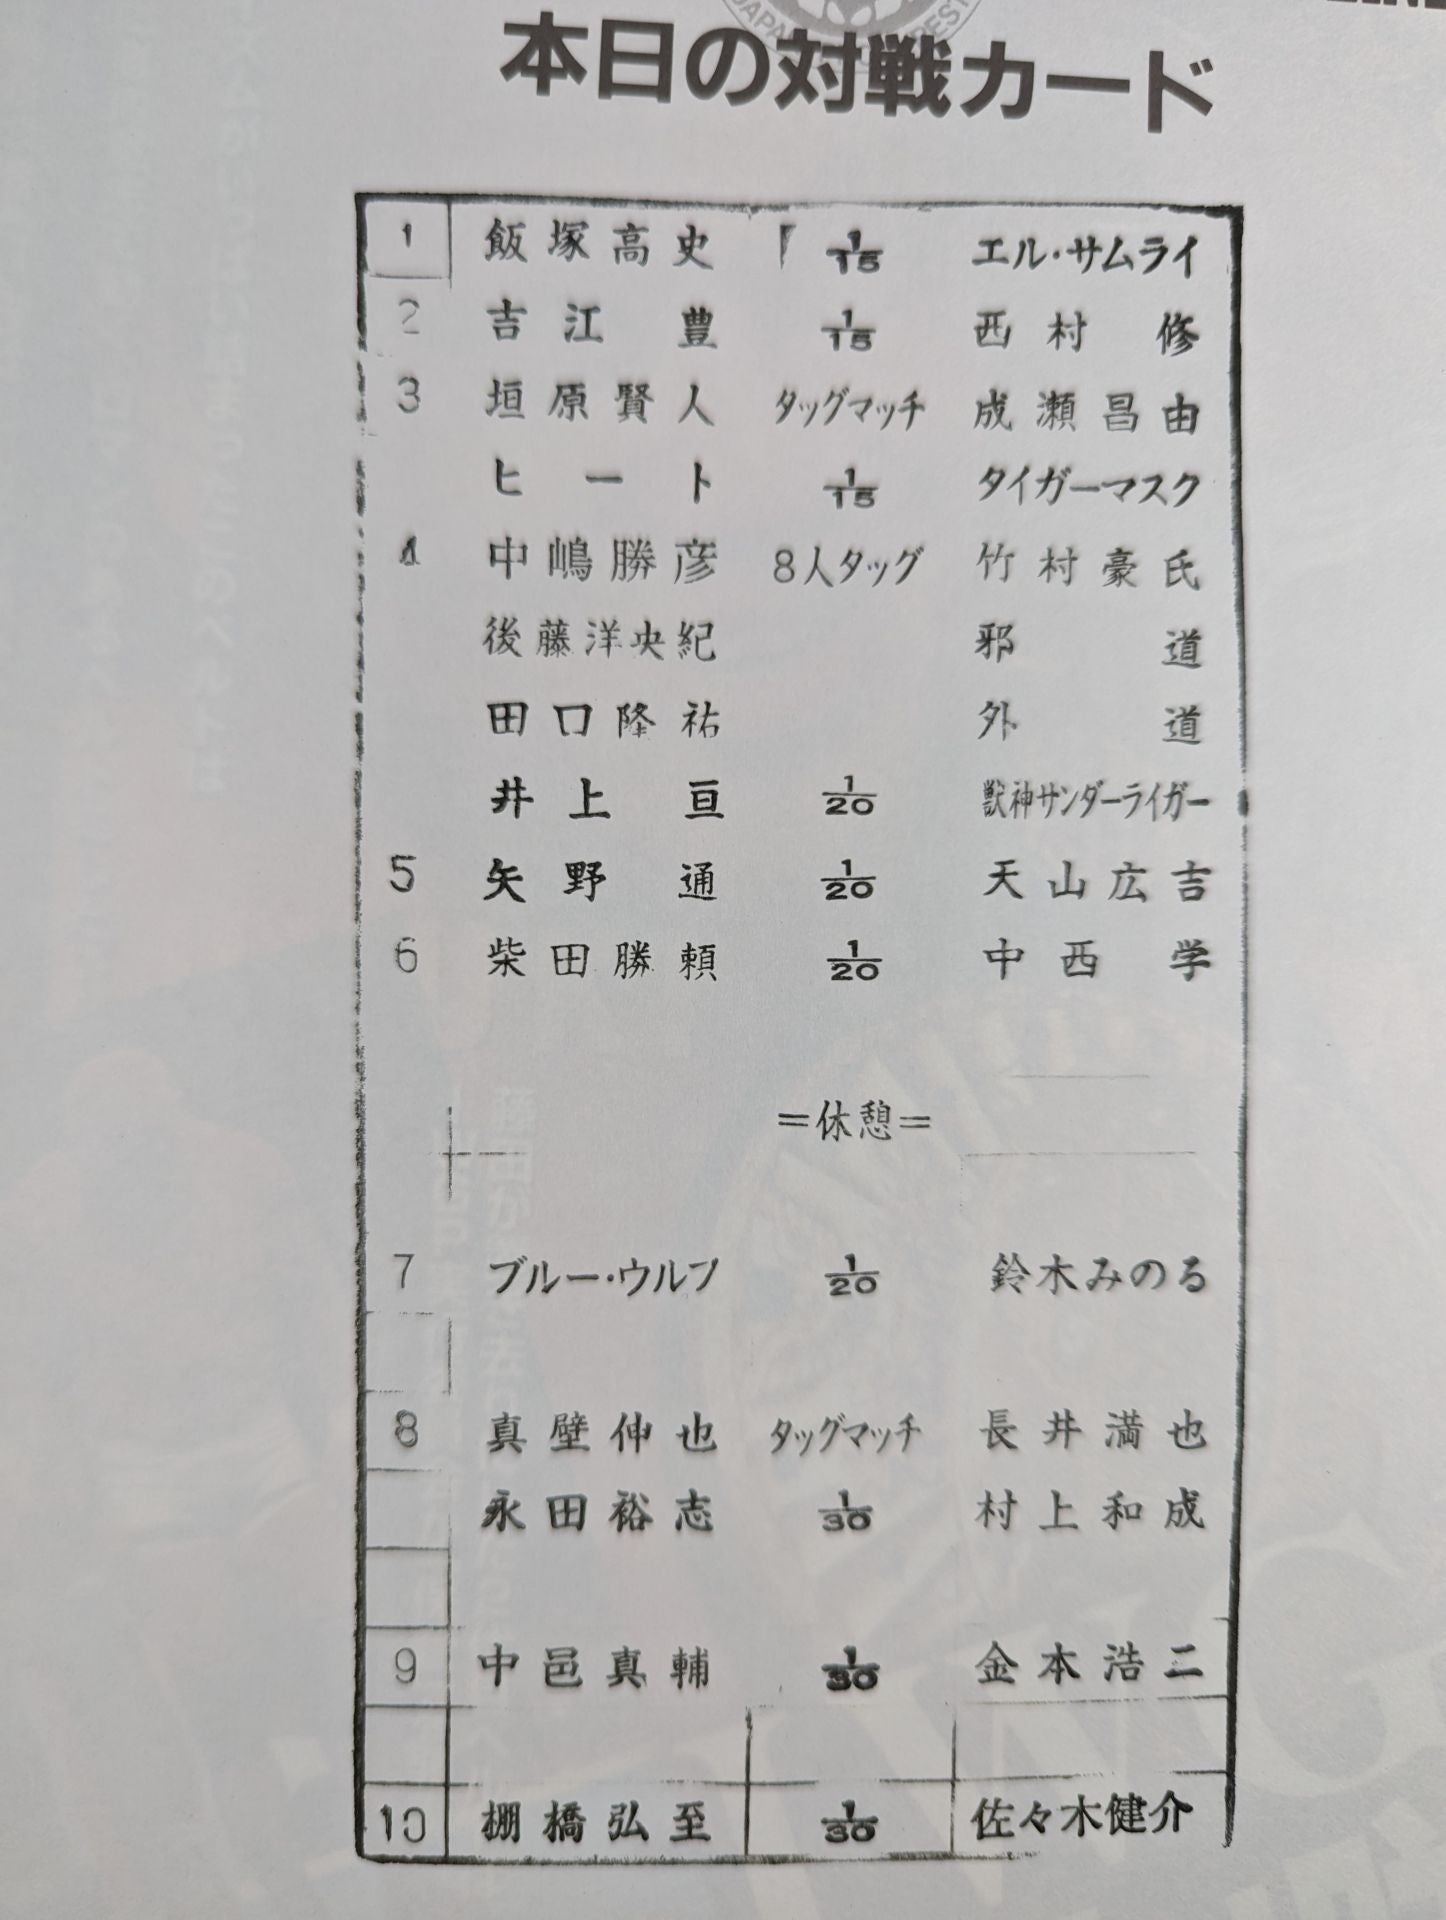 本日の対戦カード
1 飯塚高史 1/15 エル・サムライ
2 吉江豊 1/15 西村修
3 垣原賢人 タッグマッチ 成瀬昌由
ヒート 1/15 タイガーマスク
4 中嶋勝彦 8人タッグ 竹村豪氏
後藤洋央紀 邪道
田口隆祐 外道
井上亘 1/20 獣神サンダーライガー
5 矢野通 1/20 天山広吉
6 柴田勝頼 1/20 中西学
=休憩=
7 ブルー・ウルフ 1/20 鈴木みのる
8 真壁伸也 タッグマッチ 長井満也
永田裕志 1/30 村上和成
9 中邑真輔 1/30 金本浩二
10 棚橋弘至 1/30 佐々木健介